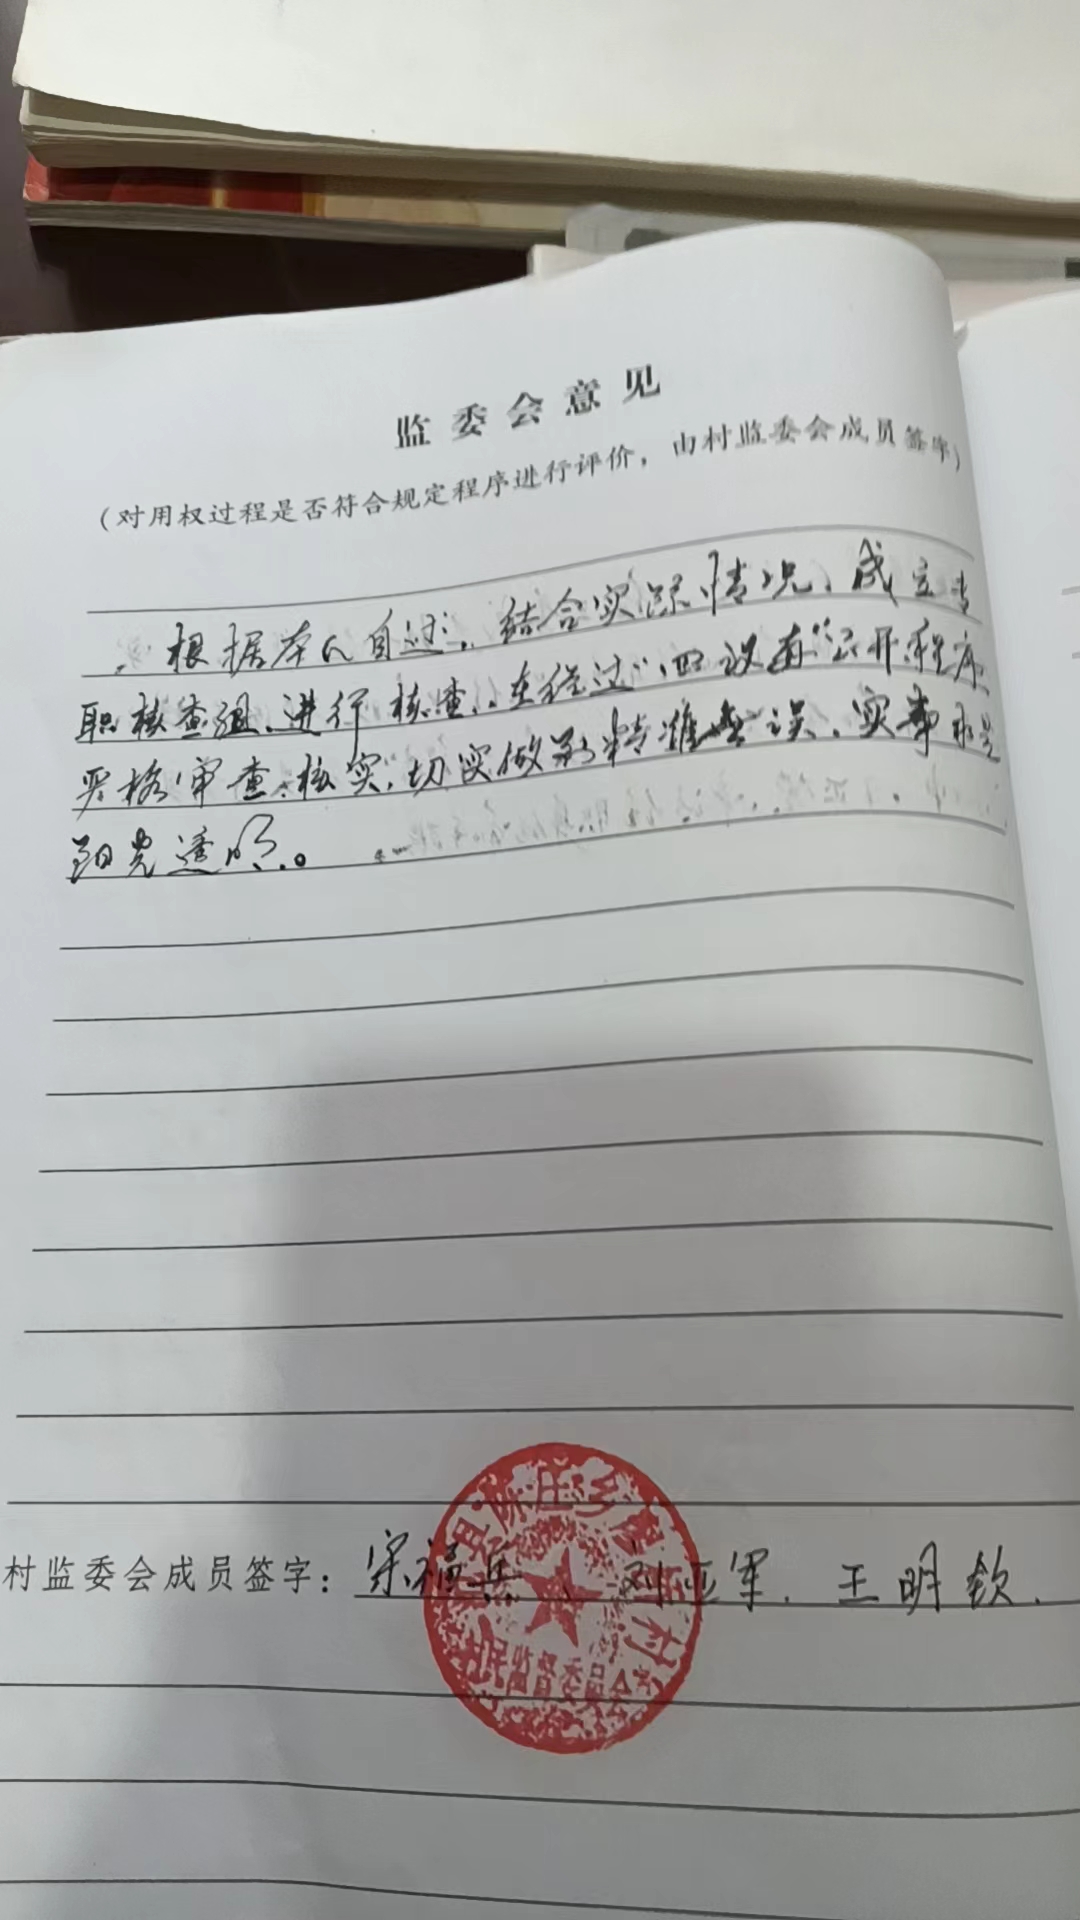 监委会意见
（对用权过程是否符合规定程序进行评价，由村监委会成员签字）
根据本人自述，结合实际情况，成立专
职核查组，进行核查，在经过“四议两公开”程序
严格审查、核实，切实做到精准无误，实事求是
阳光透明。
县陈庄乡 村
村民监督委员会
村监委会成员签字：宋福兵、刘亚军、王明钦.